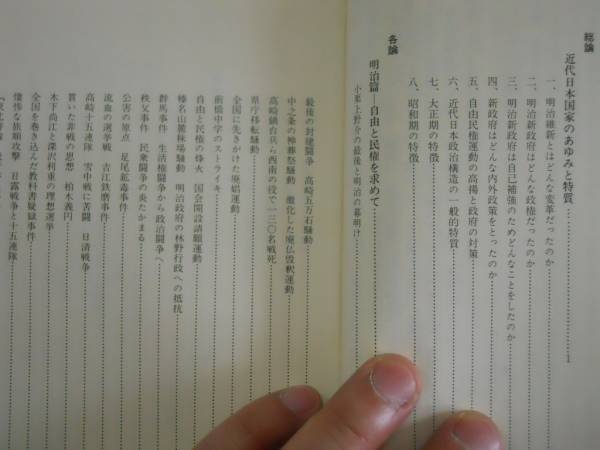 総論
近代日本国家のあゆみと特質
一、明治維新とはどんな変革だったのか
二、明治新政府はどんな政権だったのか
三、明治新政府は自己補強のためどんなことをしたのか
四、新政府はどんな内外政策をとったのか
五、自由民権運動の高揚と政府の対策
六、近代日本政治構造の一般的特質
七、大正期の特徴
八、昭和期の特徴
各論
明治篇―自由と民権を求めて
小栗上野介の最後と明治の幕明け
最後の封建闘争 高崎五万石騒動
中之条の神葬祭騒動 激化した廃仏毀釈運動
高崎鎮台兵ら西南の役で一三〇名戦死
県庁移転騒動
全国に先きがけた廃娼運動
前橋中学のストライキ
自由と民権の烽火 国会開設請願運動
榛名山麓秣場騒動 明治政府の林野行政への抵抗
群馬事件 生活権闘争から政治闘争へ
秩父事件 民衆闘争の炎たかまる
公害の原点 足尾鉱毒事件
流血の選挙戦 吉江鉄磨事件
高崎十五連隊 雪中戦に苦闘 日清戦争
貫いた非戦の思想 柏木義円
木下尚江と深沢利重の理想選挙
全国を巻き込んだ教科書疑獄事件
凄惨な旅順攻撃 日露戦争と十五連隊